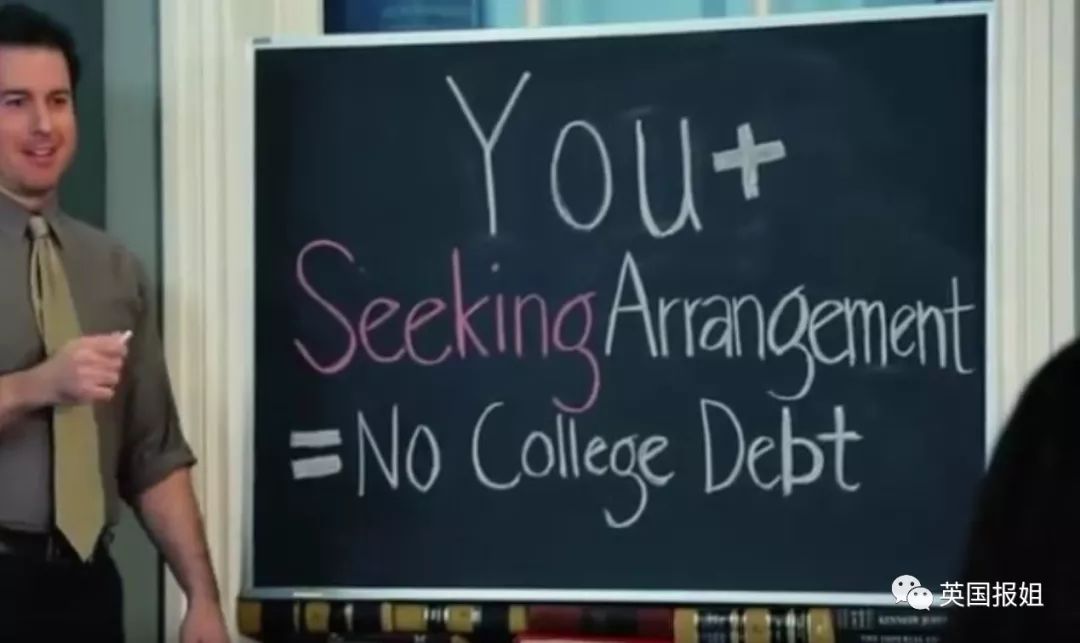 You+
SeekingArrangement
=No College Debt
英国报姐